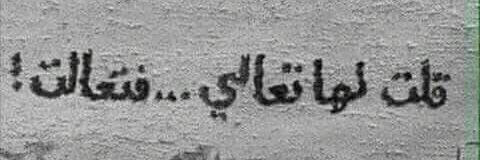 قلت لها تعالي...فتعالت!